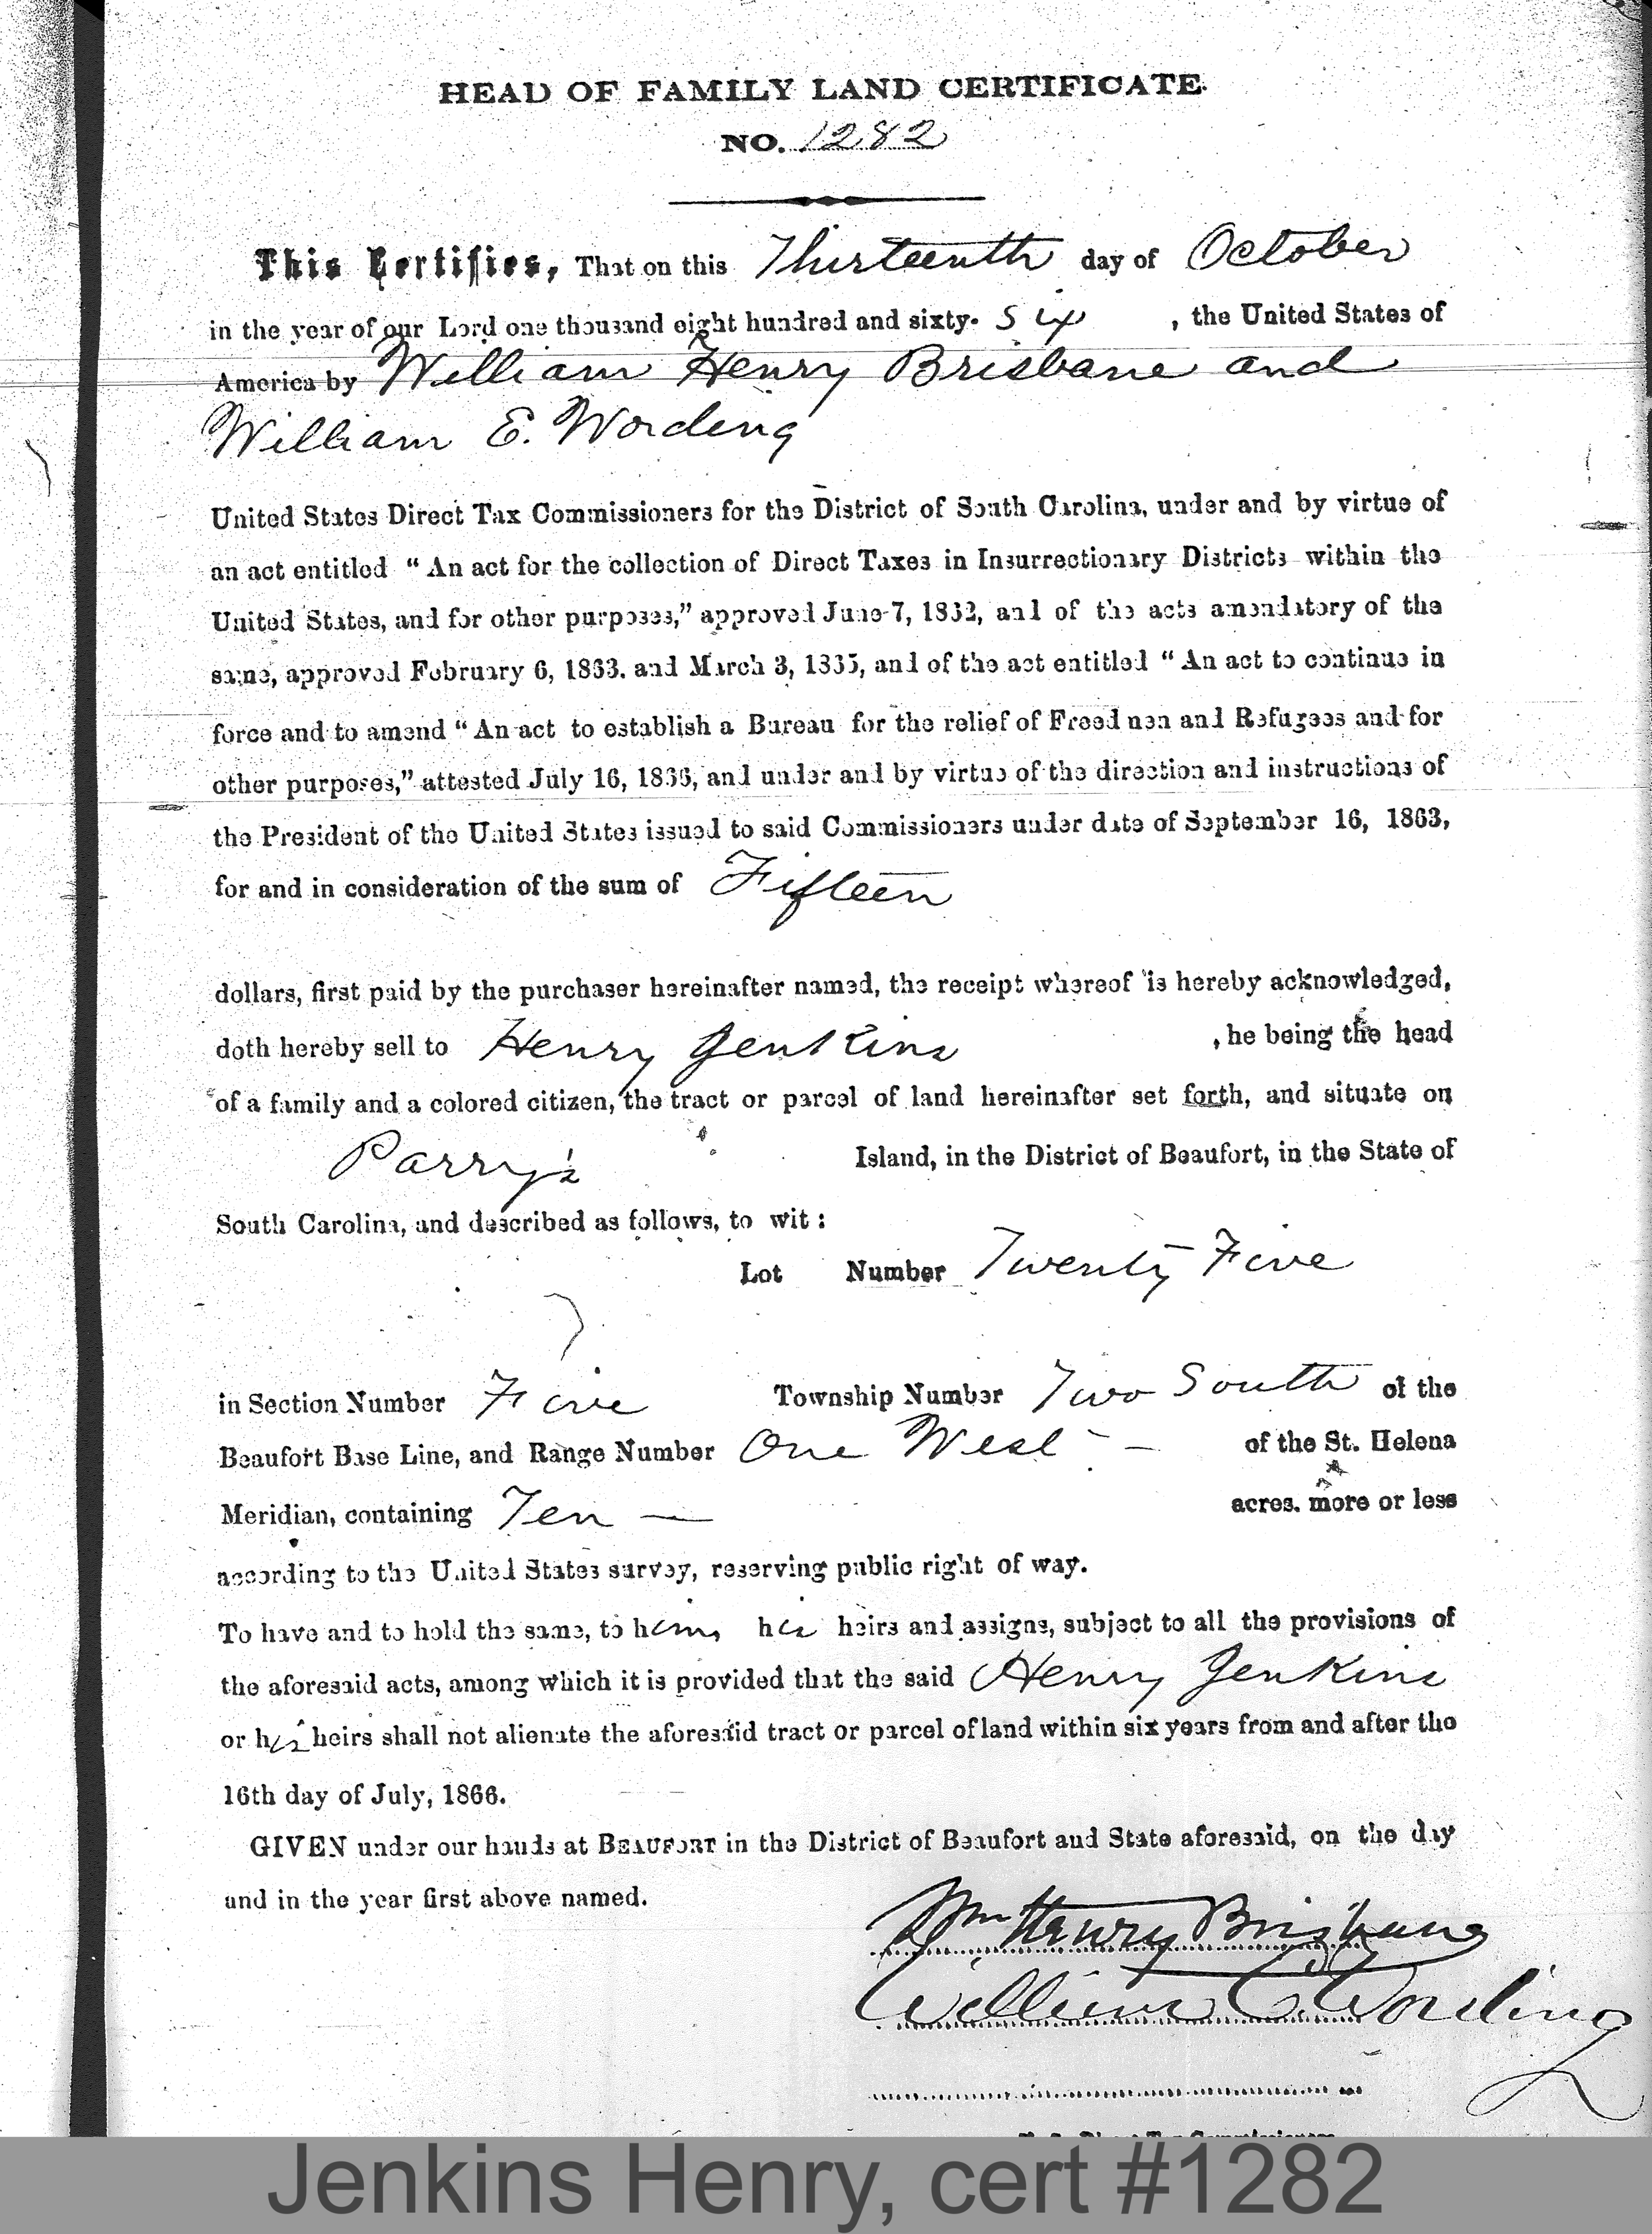 HEAD OF FAMILY LAND CERTIFICATE.
NO. 1282
This Certifies, That on this Thirteenth day of October
in the year of our Lord one thousand eight hundred and sixty- Six , the United States of
America by William Henry Brisbane and
William E. Wording
United States Direct Tax Commissioners for the District of South Carolina, under and by virtue of
an act entitled “ An act for the collection of Direct Taxes in Insurrectionary Districts within the
United States, and for other purposes,” approved June 7, 1862, and of the acts amendatory of the
same, approved February 6, 1863. and March 3, 1865, and of the act entitled “ An act to continue in
force and to amend “ An act to establish a Bureau for the relief of Freedmen and Refugees and for
other purposes,” attested July 16, 1866, and under and by virtue of the direction and instructions of
the President of the United States issued to said Commissioners under date of September 16, 1863,
for and in consideration of the sum of Fifteen
dollars, first paid by the purchaser hereinafter named, the receipt whereof is hereby acknowledged,
doth hereby sell to Henry Jenkins , he being the head
of a family and a colored citizen, the tract or parcel of land hereinafter set forth, and situate on
Parry's Island, in the District of Beaufort, in the State of
South Carolina, and described as follows, to wit :
Lot Number Twenty Five
in Section Number Five Township Number Two South of the
Beaufort Base Line, and Range Number One West — of the St. Helena
Meridian, containing Ten — acres. more or less
according to the United States survey, reserving public right of way.
To have and to hold the same, to him, his heirs and assigns, subject to all the provisions of
the aforesaid acts, among which it is provided that the said Henry Jenkins
or his heirs shall not alienate the aforesaid tract or parcel of land within six years from and after the
16th day of July, 1866.
GIVEN under our hands at BEAUFORT in the District of Beaufort and State aforesaid, on the day
and in the year first above named.
Wm Henry Brisbane
William E. Wording
Jenkins Henry, cert #1282